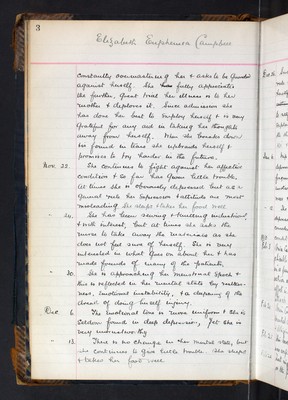 3
Elizabeth Euphemia Campbell
constantly commiserating her & asks to be guarded
against herself. She fully appreciates
the further great trial her illness is to her
mother & deplores it. Since admission she
has done her best to employ herself & is very
grateful for any aid in taking her thoughts
away from herself. When she breaks down
or found in tears she upbraids herself &
promises to try harder in the future.
Nov. 22. She continues to fight against her affective
condition & so far has given little trouble.
At times she is obviously depressed but as a
general rule her expression & attitude are most
misleading. She sleeps & takes her food well.
" 24. She has been sewing & knitting industriously
& with interest, but at times she asks the
nurse to take away the materials as she
does not feel sure of herself. She is very
interested in what goes on about her & has
made friends of many of the patients.
" 30. She is approaching her menstrual epoch &
this is reflected in her mental state by restless-
ness, emotional instability, & a deepening of the
dread of doing herself injury.
Dec. 6. The emotional tone is more uniform & she is
seldom found in deep depression, yet she is
very untrustworthy.
" 12. There is no change in her mental state, but
she continues to give little trouble. She sleeps
& takes her food well.